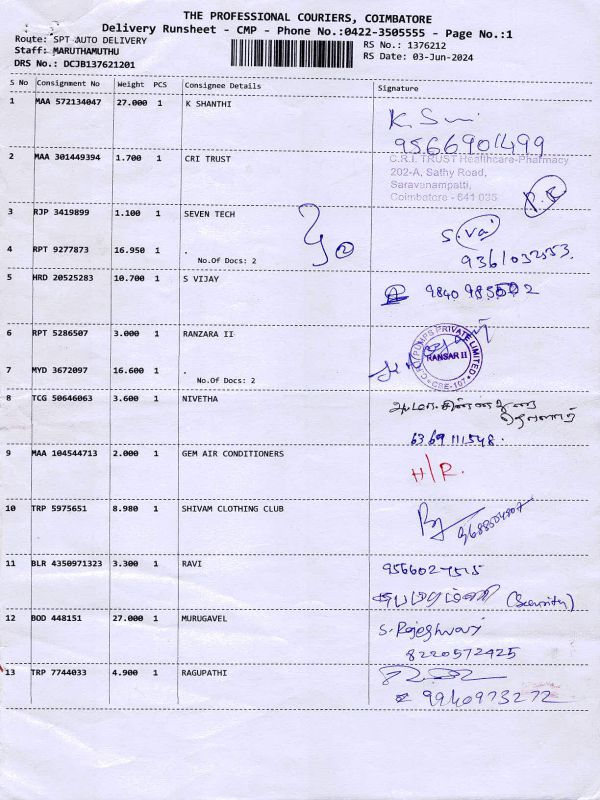 THE PROFESSIONAL COURIERS, COIMBATORE
Delivery Runsheet - CMP - Phone No.:0422-3505555 - Page No.:1
Route: SPT AUTO DELIVERY
Staff: MARUTHAMUTHU
RS No.: 1376212
DRS No.: DCJB137621201
RS Date: 03-Jun-2024
S No Consignment No Weight PCS Consignee Details Signature
1 MAA 572134047 27.000 1 K SHANTHI
9566901499
2 MAA 301449394 1.700 1 CRI TRUST
C.R.I. TRUST Healthcare-Pharmacy
202-A, Sathy Road,
Saravanampatti,
Coimbatore - 641 035
3 RJP 3419899 1.100 1 SEVEN TECH
4 RPT 9277873 16.950 1 .
No.Of Docs: 2
5 HRD 20525283 10.700 1 S VIJAY
6 RPT 5286507 3.000 1 RANZARA II
C.R.I. PUMPS PRIVATE LIMITED
RANSAR II
CBE-107
7 MYD 3672097 16.600 1 .
No.Of Docs: 2
8 TCG 50646063 3.600 1 NIVETHA
6369111548.
9 MAA 104544713 2.000 1 GEM AIR CONDITIONERS
H/R.
10 TRP 5975651 8.980 1 SHIVAM CLOTHING CLUB
11 BLR 4350971323 3.300 1 RAVI
(Security)
12 BOD 448151 27.000 1 MURUGAVEL
S. Rajeshwari
8220572425
13 TRP 7744033 4.900 1 RAGUPATHI
9940973272